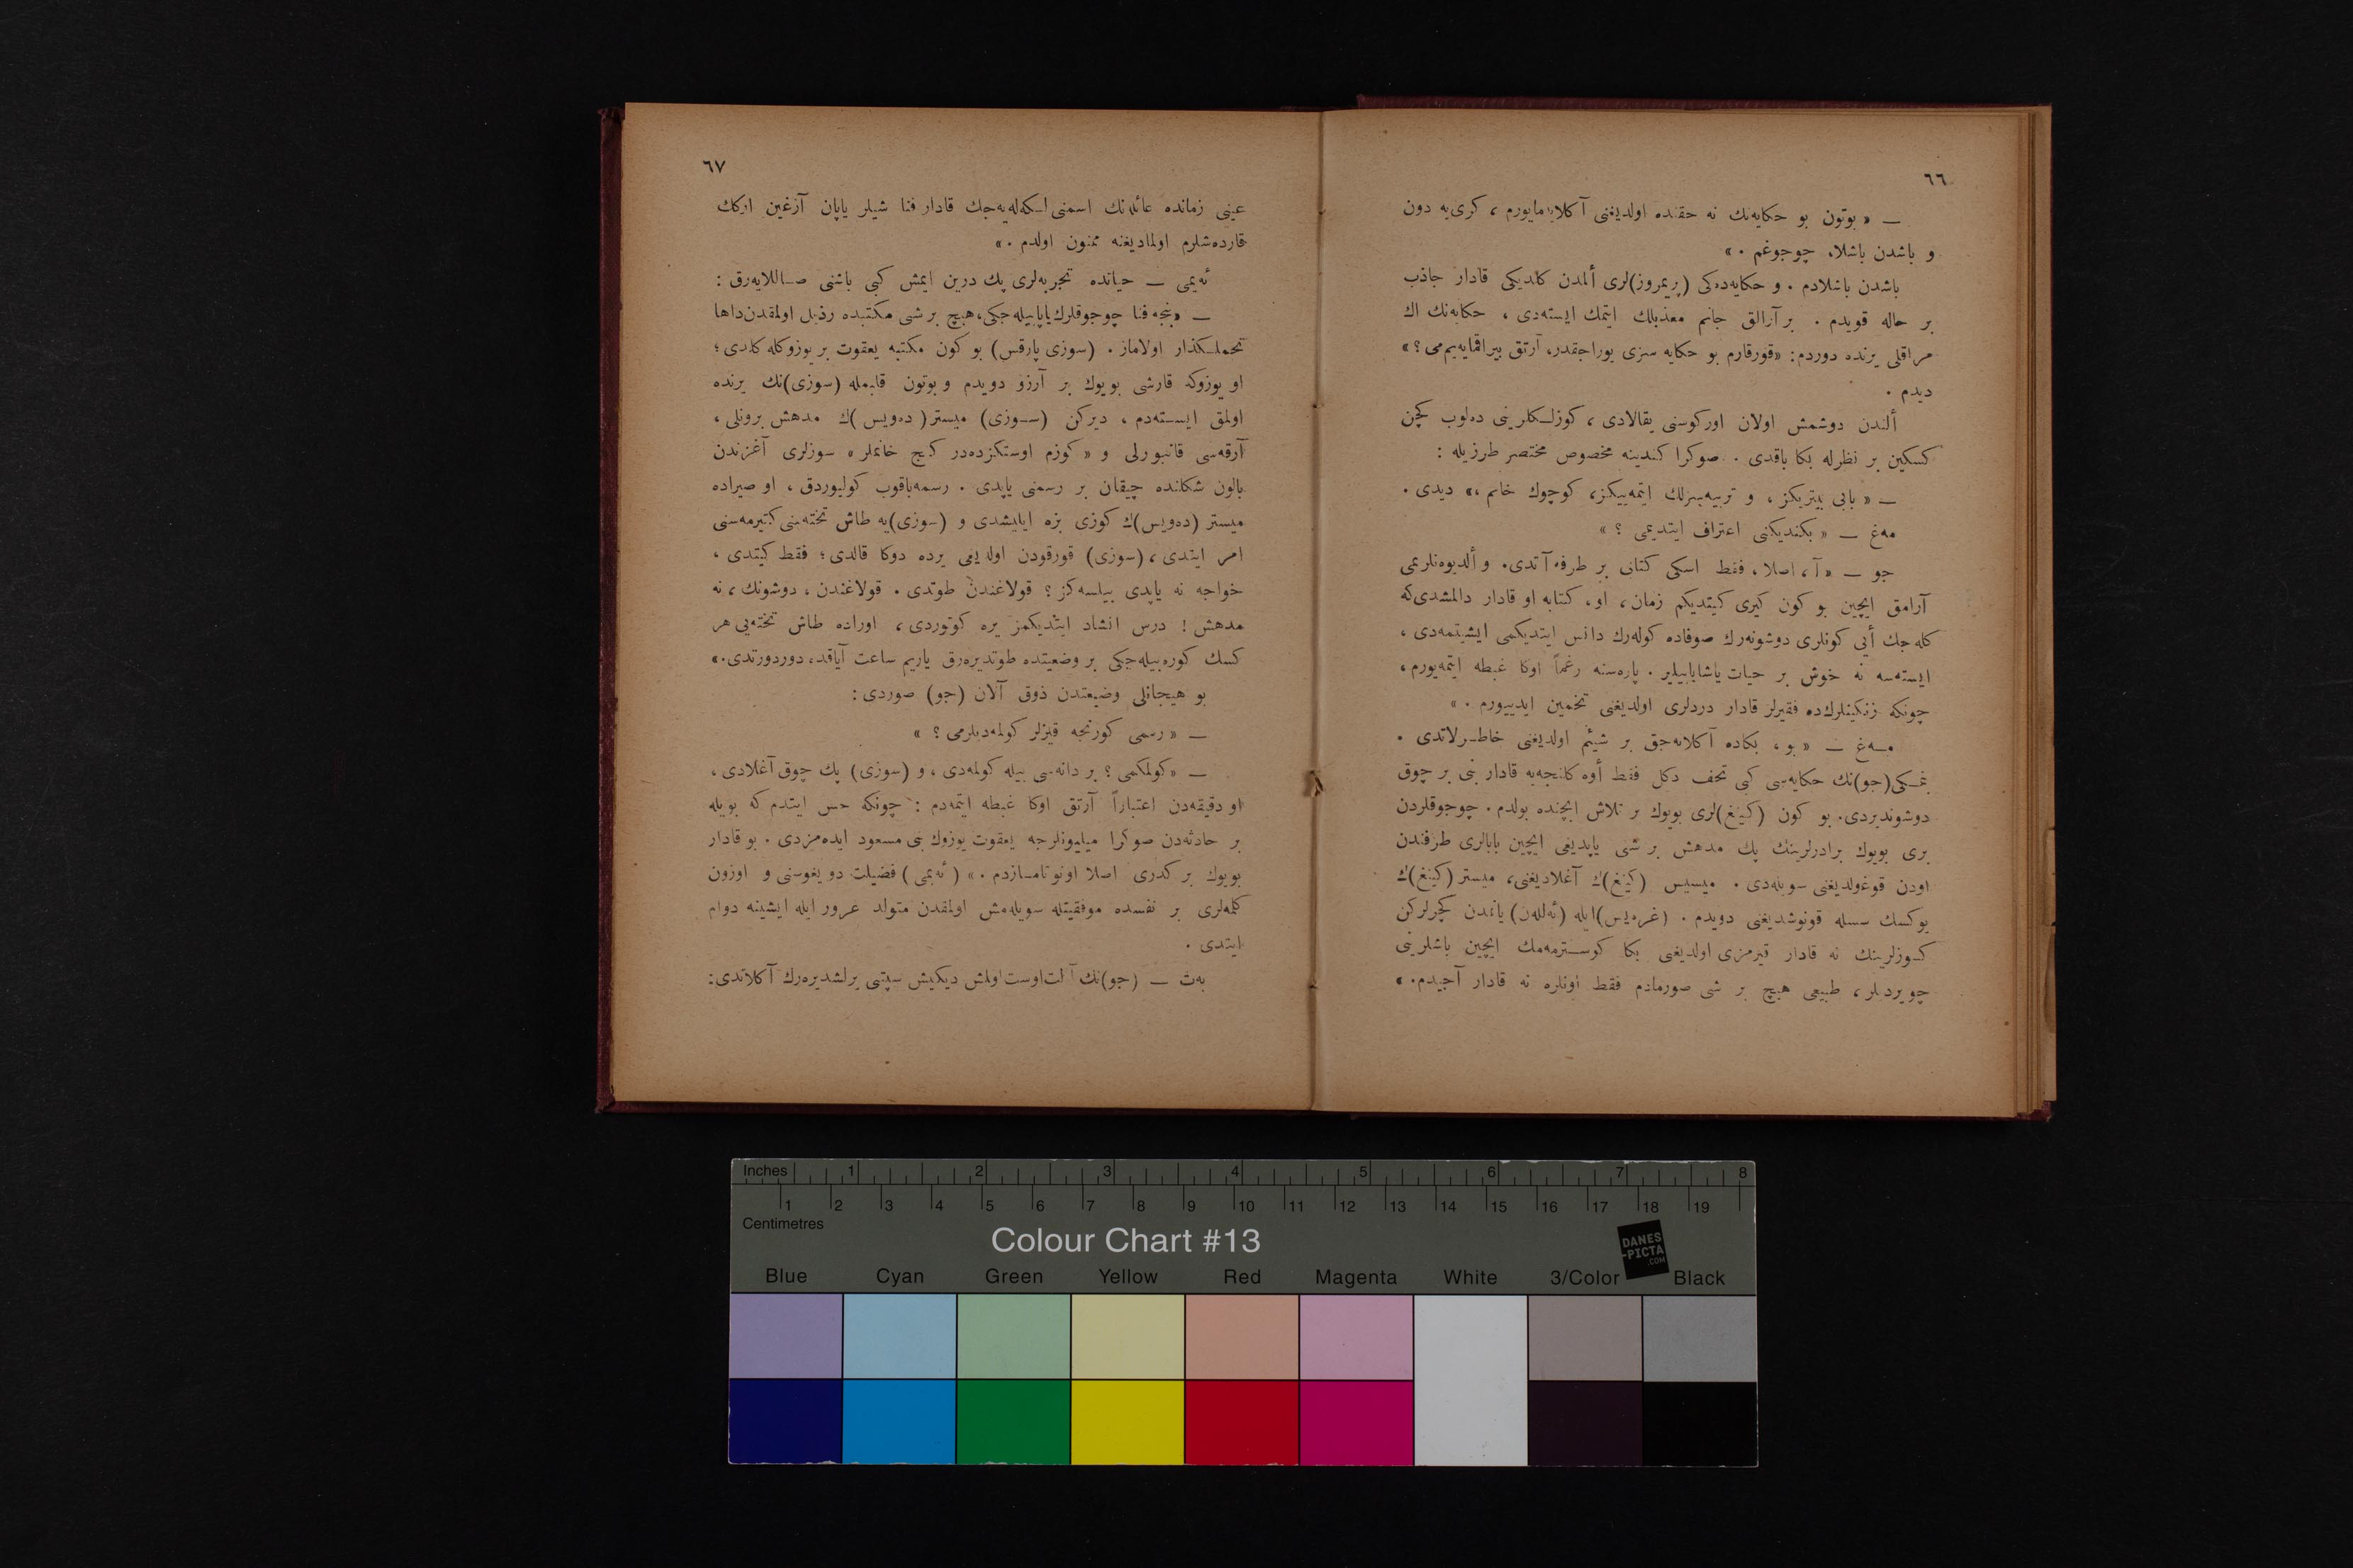 ٦٦
— « بوتون بو حكایه‌نك نه حقنده اولدیغنی آكلایامایورم ، كری‌یه دون
و باشدن باشلا، چوجوغم . »
باشدن باشلادم . و حكایه‌ده‌كی (پریمروز)لری ألمدن كلدیكی قادار جاذب
بر حاله قویدم . بر آرالق جانم معذبلك ایتمك ایسته‌دی ، حكایه‌نك اك
مراقلی یرنده دوردم: «قورقارم بو حكایه سزی یوراجقدر، آرتق بیراقمایه‌یم‌می ؟ »
دیدم .
ألندن دوشمش اولان اوركوسنی یقالادی ، كوزلكلرینی ده‌لوب كچن
كسكین بر نظرله بكا باقدی . صوكرا كندینه مخصوص مختصر طرزیله :
— « بابی بیتریكز ، و تربیه‌سزلك ایتمه‌ییكز، كوچوك خانم ،» دیدی .
مه‌غ — « بكندیكنی اعتراف ایتدیمی ؟ »
جو — « آ ، اصلا ، فقط اسكی كتابی بر طرفه آتدی. و ألدیوه‌نلریمی
آرامق ایچین بو كون كیری كیتدیكم زمان، او، كتابه او قادار دالمشدی‌كه
كله‌جك أیی كونلری دوشونه‌رك صوفاده كوله‌رك دانس ایتدیكمی ایشیتمه‌دی ،
ایسته‌سه نه خوش بر حیات یاشایابیلیر . پاره‌سنه رغماً اوكا غبطه ایتمه‌یورم،
چونكه زنكینلرك‌ده فقیرلر قادار دردلری اولدیغنی تخمین ایدییورم . »
مه‌غ — « بو ، بكاده آكلاته‌جق بر شیئم اولدیغنی خاطرلاتدی .
بمكی(جو)نك حكایه‌سی كبی تحف دكل فقط أوه كلنجه‌یه قادار بنی بر چوق
دوشوندیردی. بو كون (كینغ)لری بویوك بر تلاش ایچنده بولدم . چوجوقلردن
بری بویوك برادرلرینك پك مدهش بر شی یاپدیغی ایچین بابالری طرفندن
اودن قوغولدیغنی سویله‌دی . میسیس (كینغ)ك آغلادیغنی، میستر (كینغ)ك
یوكسك سسله قونوشدیغنی دویدم . (غره‌یس)ایله (ئه‌للەن) یانمدن كچرلركن
كوزلرینك نه قادار قیرمزی اولدیغنی بكا كوسترمه‌مك ایچین باشلرینی
چویردیلر ، طبیعی هیچ بر شی صورمادم فقط اونلره نه قادار آجیدم. »
٦٧
عینی زمانده عائله‌نك اسمنی لكه‌له‌یه‌جك قادار فنا شیلر یاپان آزغین اركك
قارده‌شلرم اولمادیغنه ممنون اولدم . »
ئه‌یمی — حیاتده تجربه‌لری پك درین ایمش كبی باشنی صاللایه‌رق :
— «بنجه فنا چوجوقلرك یاپابیله‌جكی، هیچ بر شی مكتبده رذیل اولمقدن‌داها
تحملگذار اولاماز . (سوزی پارقس) بو كون مكتبه یعقوت بر یوزوكله كلدی ؛
او یوزوكه قارشی بویوك بر آرزو دویدم و بوتون قلبمله (سوزی)نك یرنده
اولمق ایسته‌دم ، دیركن (سوزی) میستر( ده‌ویس )ك مدهش برونلی ،
آرقه‌سی قانبورلی و « كوزم اوستكزده‌در كنج خانملر » سوزلری آغزندن
بالون شكلنده چیقان بر رسمنی یاپدی . رسمه‌باقوب كولیوردق ، او صیراده
میستر (ده‌ویس)ك كوزی بزه ایلیشدی و (سوزی)یه طاش تخته‌سنی كتیرمه‌سنی
امر ایتدی ، (سوزی) قورقودن اولدیغی یرده دوكا قالدی ؛ فقط كیتدی ،
خواجه نه یاپدی بیلسه‌كز ؟ قولاغندن طوتدی . قولاغندن ، دوشونك ، نه
مدهش ! درس انشاد ایتدیكمز یره كوتوردی ، اوراده طاش تخته‌یی هر
كسك كوره‌بیله‌جكی بر وضعیتده طوتدیره‌رق یاریم ساعت آیاقده دوردورتدی.»
بو هیجانلی وضیعتدن ذوق آلان (جو) صوردی :
— « رسمی كورنجه قیزلر كولمه‌دیلرمی ؟ »
— «كولمكمی ؟ بر دانه‌سی بیله كولمه‌دی ، و (سوزی) پك چوق آغلادی ،
او دقیقه‌دن اعتباراً آرتق اوكا غبطه ایتمه‌دم : چونكه حس ایتدم كه بویله
بر حادثه‌دن صوكرا میلیونلرجه یعقوت یوزوك بنی مسعود ایده‌مزدی . بو قادار
بویوك بر كدری اصلا اونوتامازدم . » ( ئه‌یمی ) فضیلت دویغوسنی و اوزون
كلمه‌لری بر نفسده موفقیتله سویله‌مش اولمقدن متولد غرور ایله ایشینه دوام
ایتدی .
به‌ث — (جو)نك آلت‌اوست اولمش دیكیش سپتنی یرلشدیره‌رك آكلاتدی:
Inches 1 2 3 4 5 6 7 8
1 2 3 4 5 6 7 8 9 10 11 12 13 14 15 16 17 18 19
Centimetres
Colour Chart #13
DANES
-PICTA
.COM
Blue Cyan Green Yellow Red Magenta White 3/Color Black